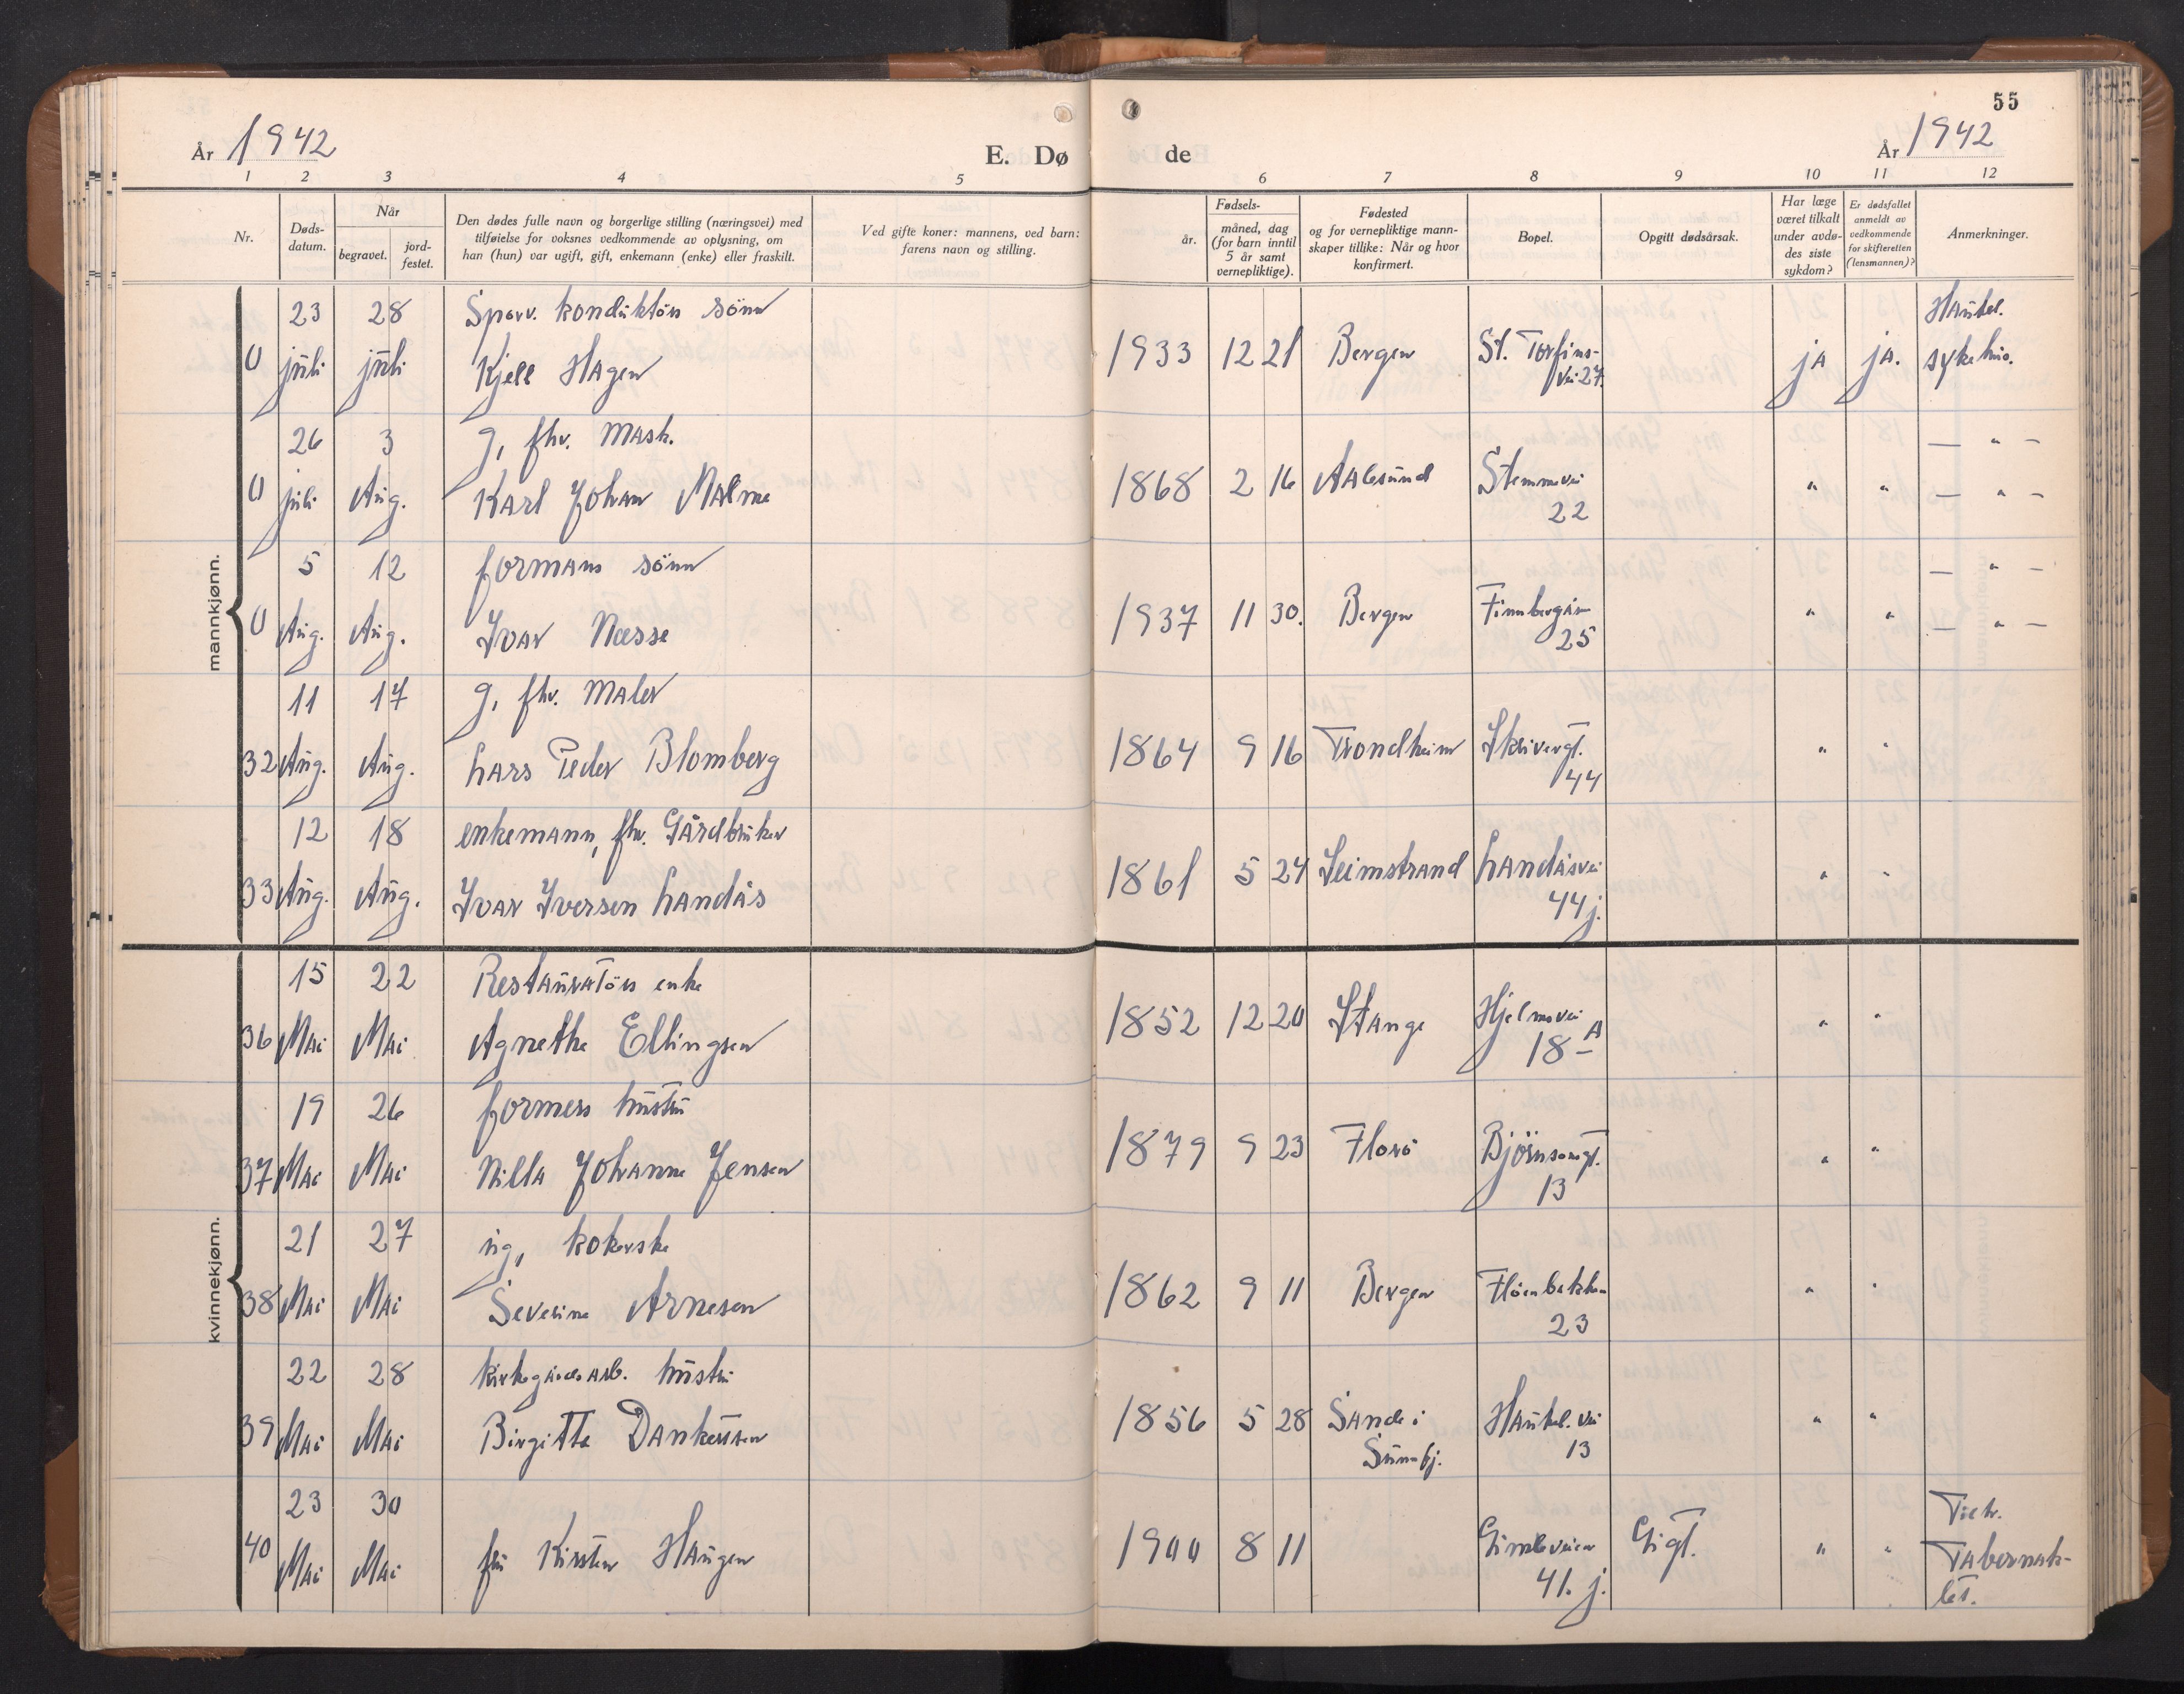 55
År 1942
E. Dø de
År 1942
1 2 3 4 5 6 7 8 9 10 11 12
Nr.
Døds-
datum.
Når
begravet.
jord-
festet.
Den dødes fulle navn og borgerlige stilling (næringsvei) med
tilføielse for voksnes vedkommende av oplysning, om
han (hun) var ugift, gift, enkemann (enke) eller fraskilt.
Ved gifte koner: mannens, ved barn:
farens navn og stilling.
Fødsels-
år.
måned, dag
(for barn inntil
5 år samt
vernepliktige).
Fødested
og for vernepliktige mann-
skaper tillike: Når og hvor
konfirmert.
Bopel.
Opgitt dødsårsak.
Har læge
været tilkalt
under avdø-
des siste
sykdom?
Er dødsfallet
anmeldt av
vedkommende
for skifteretten
(lensmannen)?
Anmerkninger.
mannkjønn.
23 28 Sporv. konduktørs sønn Haukel.
0 juli juli Kjell Hagen 1933 12 21 Bergen St. Torfins- ja ja. sykehus.
vei 27.
26 3 g, fhv. mask. — " —
0 juli Aug. Karl Johan Malme 1868 2 16 Aalesund Stemmevei " " — " —
22
5 12 formans sønn — " —
0 Aug. Aug. Ivar Næsse 1937 11 30. Bergen Finnbergåsv " " — " —
25
11 17 g, fhv. maler
32 Aug. Aug. Lars Peder Blomberg 1864 9 16 Trondheim Skrivergt. " "
44
12 18 enkemann, fhv. Gårdbruker
33 Aug. Aug. Ivar Iversen Landås 1861 5 24 Leimstrand Landåsvei " "
44 j.
kvinnekjønn.
15 22 Restauratørs enke
36 Mai Mai Agnethe Ellingsen 1852 12 20 Stange Hjelmsvei " "
18 A
19 26 formers hustru
37 Mai Mai Nilla Johanne Jensen 1879 9 23 Florö Björnsonsgt. " "
13
21 27 ug, kokerske
38 Mai Mai Severine Arnesen 1862 9 11 Bergen Flöenbakken " "
23
22 28 kirkegårdsarb. hustru
39 Mai Mai Birgitte Dankertsen 1856 5 28 Sande i Haukel. vei " "
Sunnfj. 13
23 30
40 Mai Mai fru Kirsten Haugen 1900 8 11 Gimleveien Gigt. " "
41. j. Tabernak-
let.